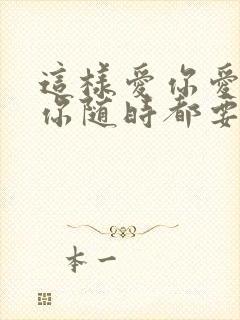 這樣愛你愛
你随時都要
本一